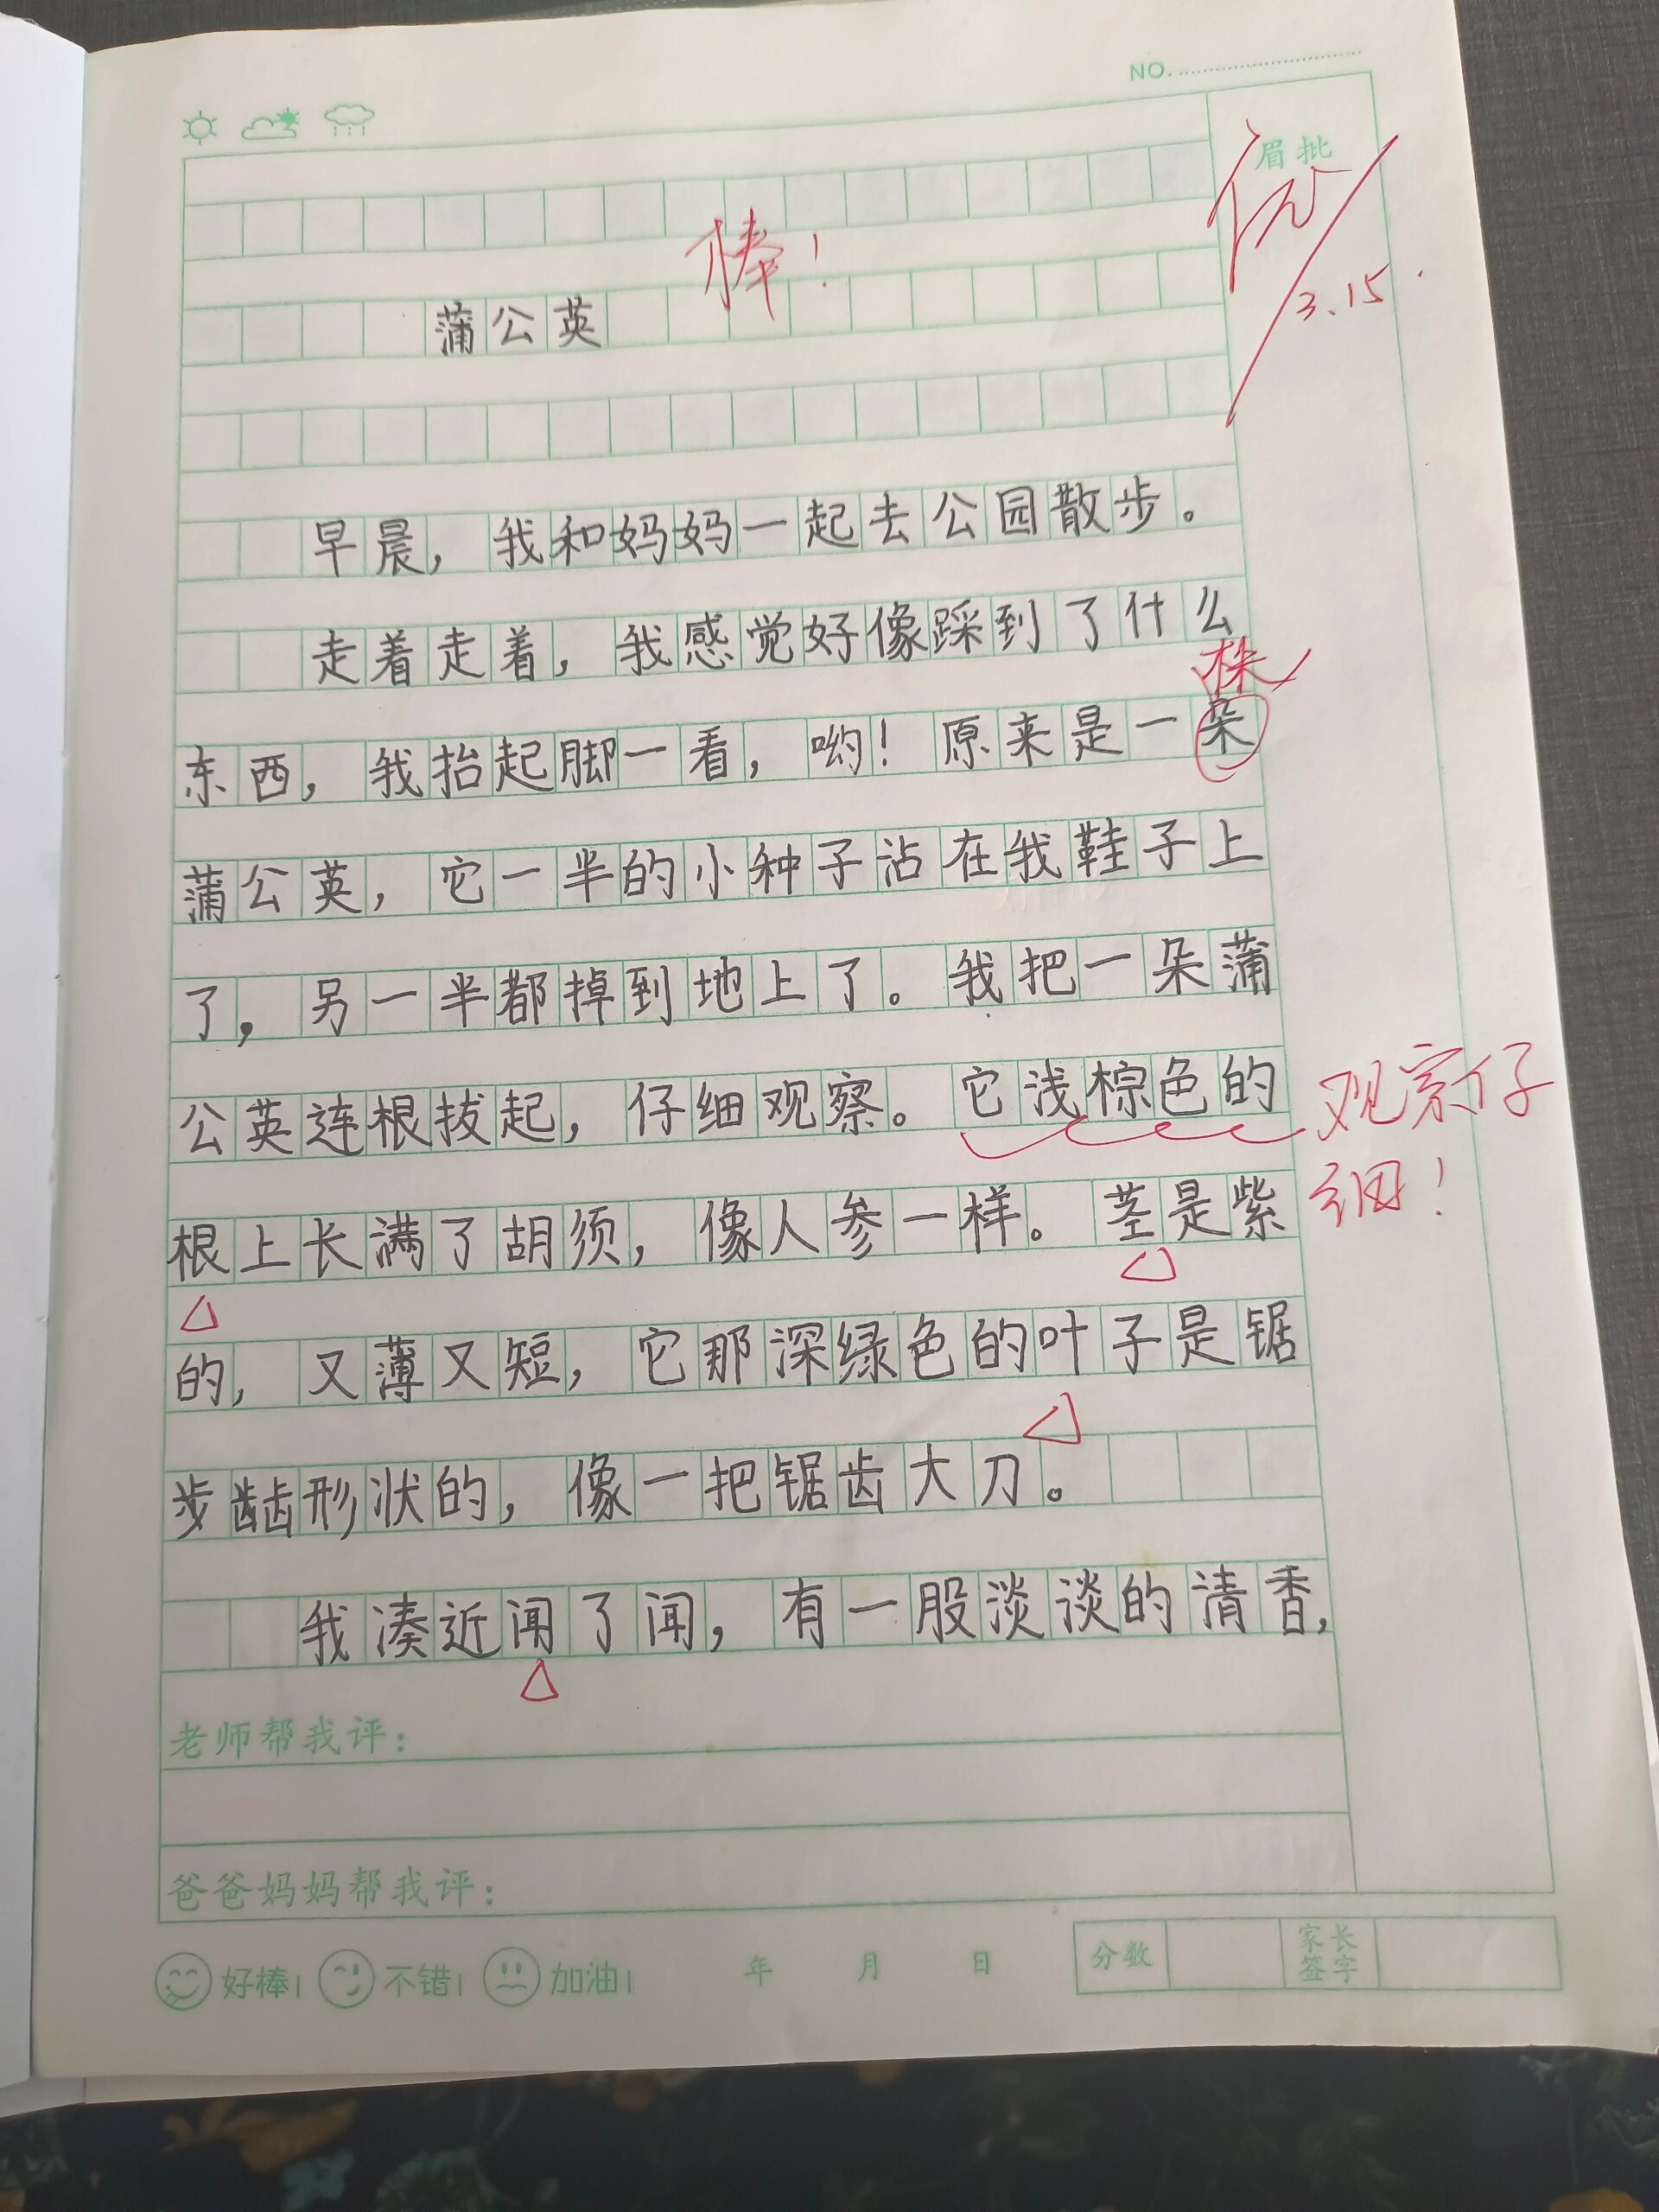 NO.
眉批
优
3.15.
棒!
蒲公英
早晨，我和妈妈一起去公园散步。
走着走着，我感觉好像踩到了什么
株
东西，我抬起脚一看，哟！原来是一朵
蒲公英，它一半的小种子沾在我鞋子上
了，另一半都掉到地上了。我把一朵蒲
公英连根拔起，仔细观察。它浅棕色的
观察仔
细！
根上长满了胡须，像人参一样。茎是紫
的，又薄又短，它那深绿色的叶子是锯
步齿形状的，像一把锯齿大刀。
我凑近闻了闻，有一股淡淡的清香，
老师帮我评：
爸爸妈妈帮我评：
好棒! 不错! 加油! 年 月 日 分数 家长签字